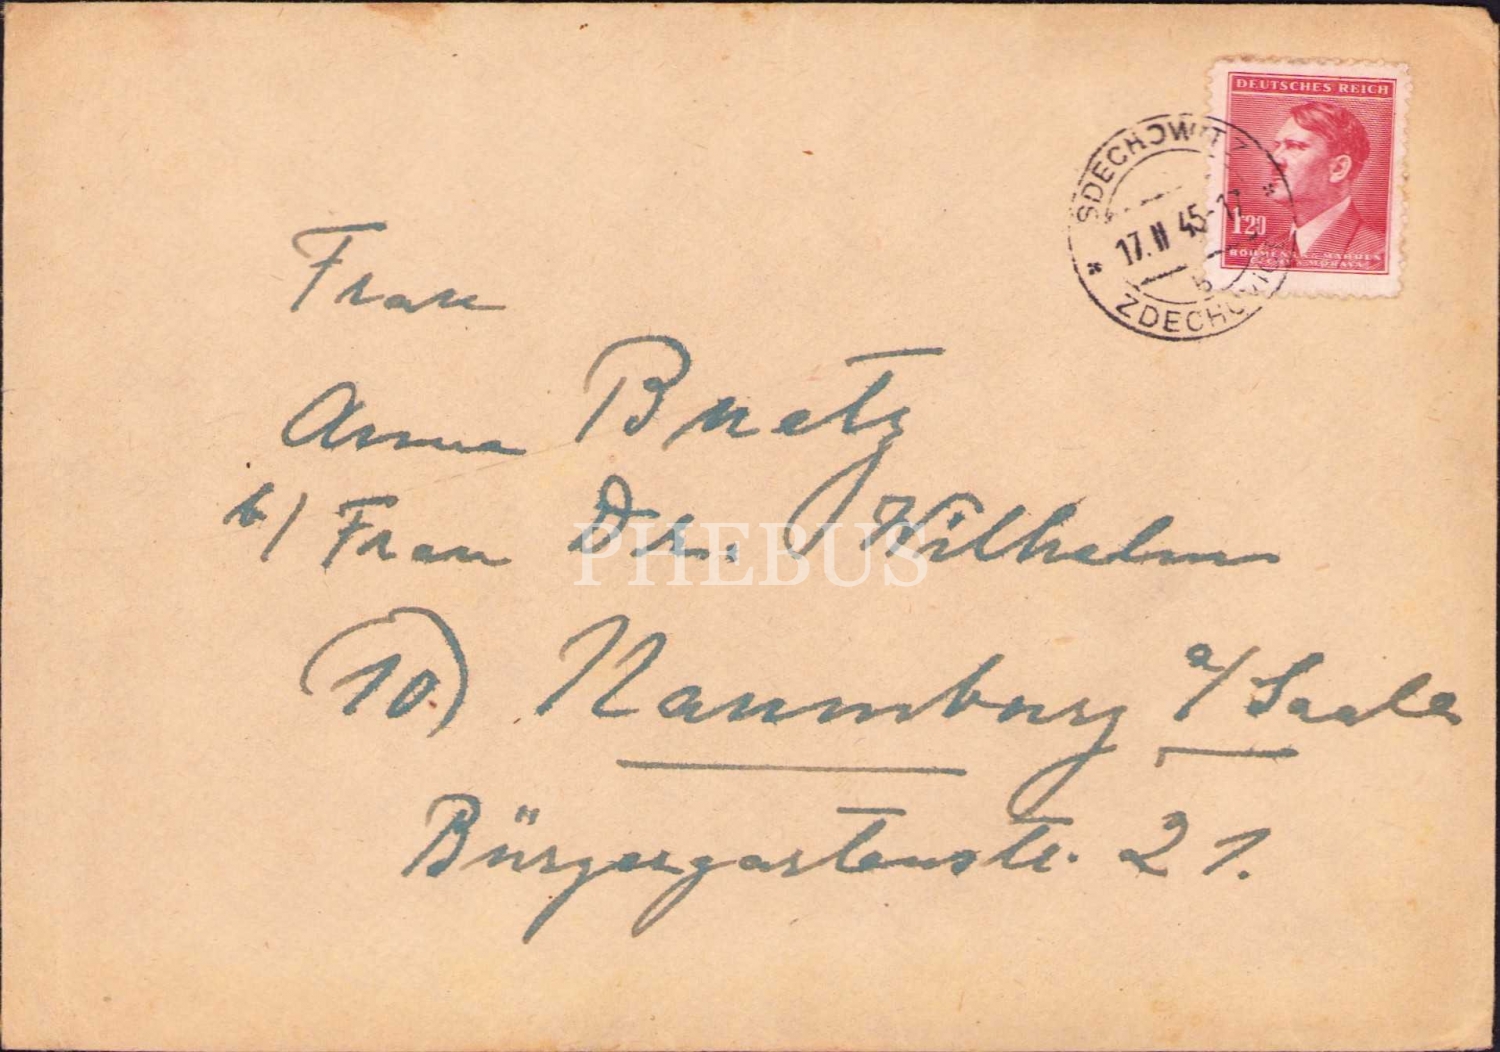 DEUTSCHES REICH
1.20
BÖHMEN UND MÄHREN
ČECHY A MORAVA
SDECHOWITZ
17.II 45-17
b
ZDECHOVICE
Frau
Anna Bretz
b/ Frau Dr. Wilhelm
(10) Naumburg a/Saale
Bürgergartenstr. 21.
PHEBUS